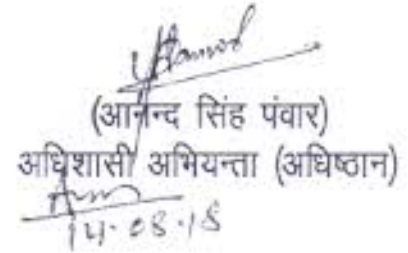 (आनन्द सिंह पंवार)
अधिशासी अभियन्ता (अधिष्ठान)
14.08.18